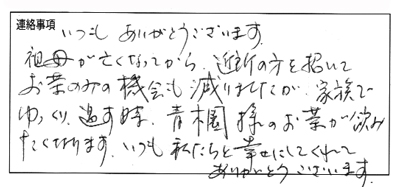 連絡事項
いつも ありがとうございます。
祖母が亡くなってから、近所の方を招いて
お茶のみの機会も減りましたが、家族で
ゆっくり過す時、青木園様のお茶が飲み
たくなります。いつも私たちを幸せにしてくれて
ありがとうございます。